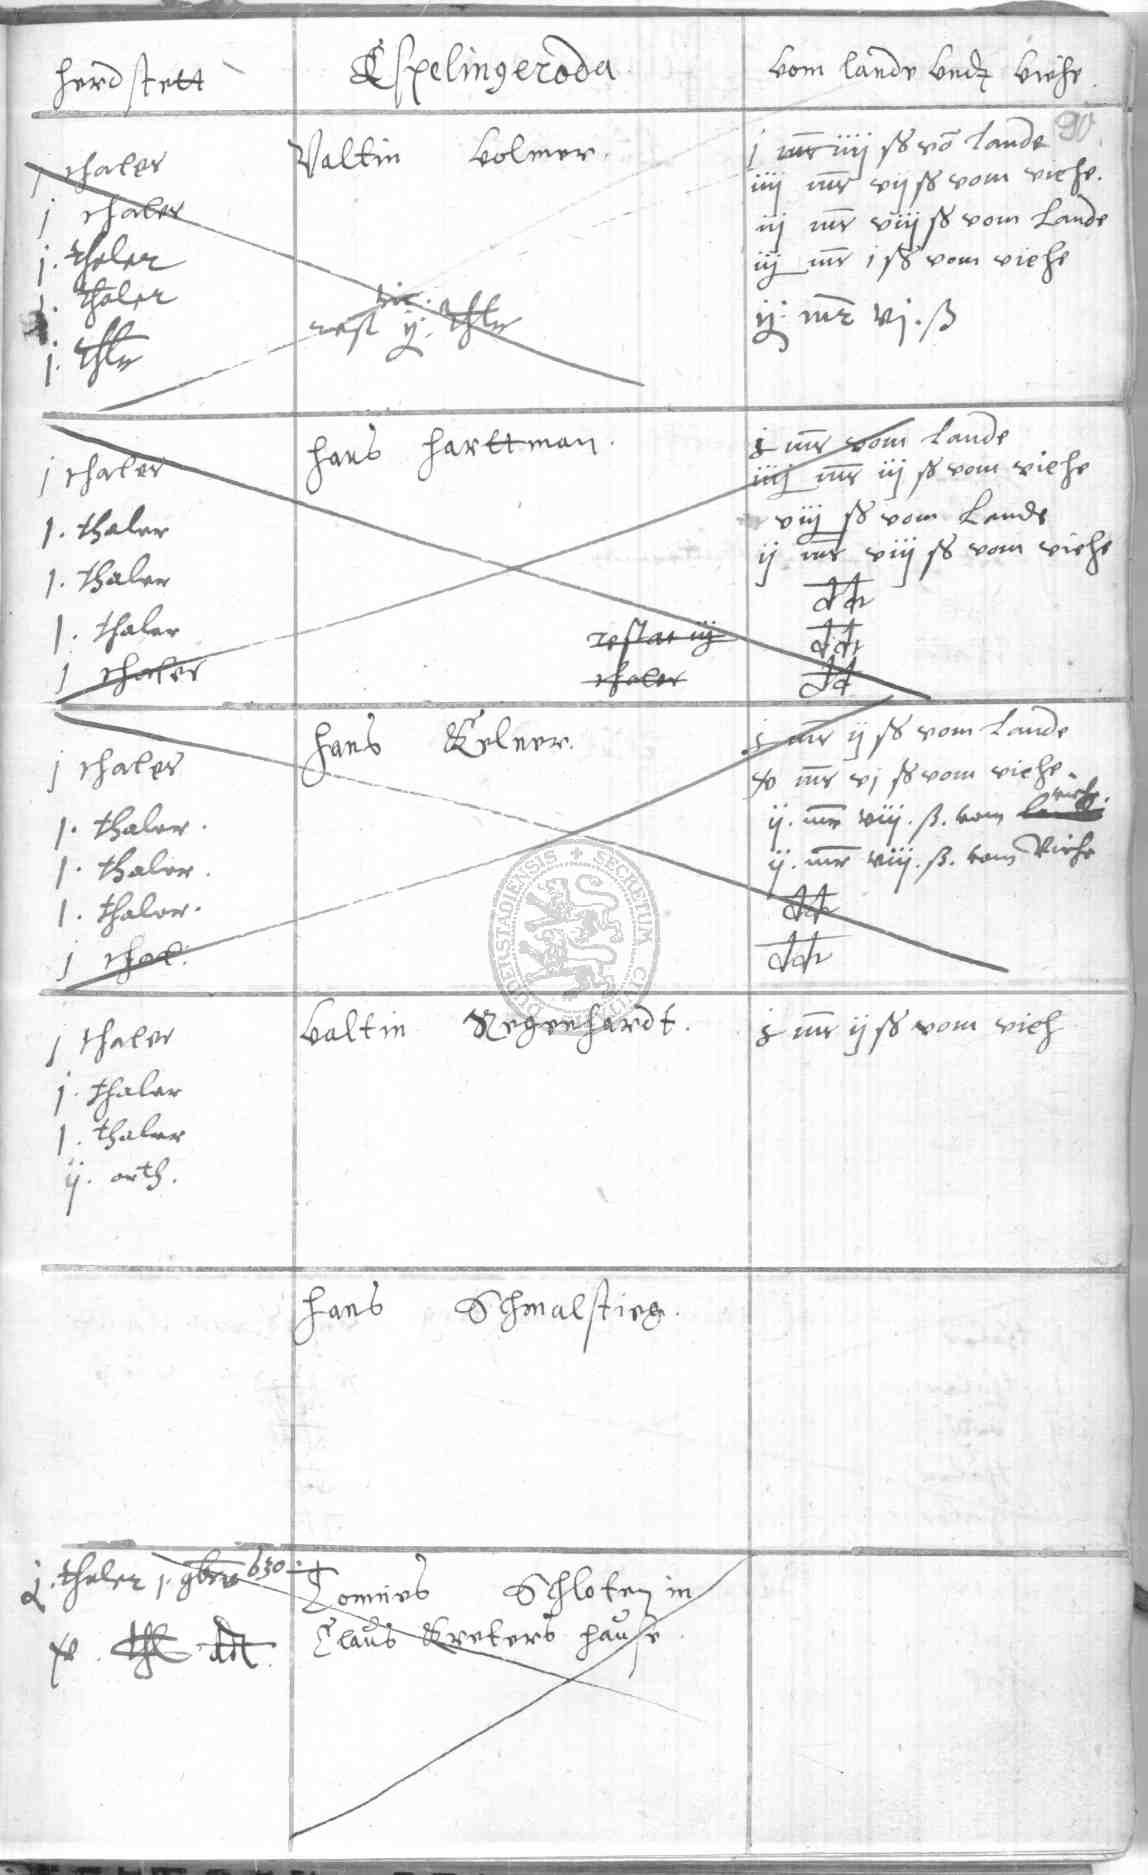 herdstett
Espelingeroda
vom lande undt viehe
90
j thaler
j thaler
j. thaler
j. thaler
j. thlr
Valtin Volmer.
rest ij. thlr
j mr iiij ß vō Lande
iiij mr vij ß vom viehe.
iij mr viij ß vom Lande
iij mr j ß vom viehe
ij. mr vj. ß
j thaler
1. thaler
1. thaler
1. thaler
j thaler
hans harttman.
restat iij
thaler
j mr vom Lande
iiij mr iij ß vom viehe
viij ß vom Lande
ij mr viij ß vom viehe
dt
dt
dt
j thaler
1. thaler.
1. thaler.
1. thaler.
j thal.
hans Kelner.
j mr ij ß vom Lande
v mr vj ß vom viehe.
viehe.
ij. mr viij. ß. vom
ij. mr viij. ß. vom Viehe
dt
dt
DUDERSTADIENSIS + SECRETUM CIVIT
j thaler
j. thaler
1. thaler
ij. orth.
Valtin Regenhardt.
j mr ij ß vom vieh
hans Schmalstieg.
j. thaler j. 630
thl dt.
Tomies Schloten in
Claus Kreters hause.